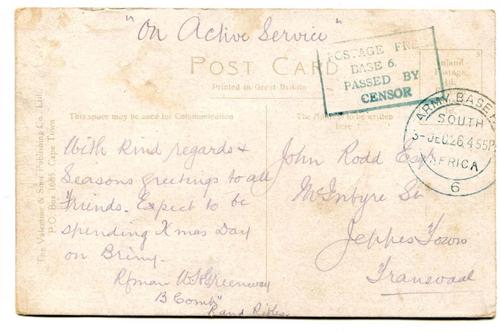 "On Active Service"
POST CARD
Printed in Great Britain
POSTAGE FREE
BASE 6.
PASSED BY
CENSOR
Inland
Postage
This space may be used for Communication
The
to be written
here
ARMY BASE
SOUTH
3-DEC 26 4.55P
AFRICA
6
With kind regards &
Seasons greetings to all
Friends. Expect to be
spending Xmas Day
on Briny.
Rfman W H Greenway
B Comp"
Rand Rifles.
John Rodd Esq
McIntyre St
Jeppes Town
Transvaal
The Valentine & Sons Publishing Co. Ltd.
P.O. Box 1685, Cape Town